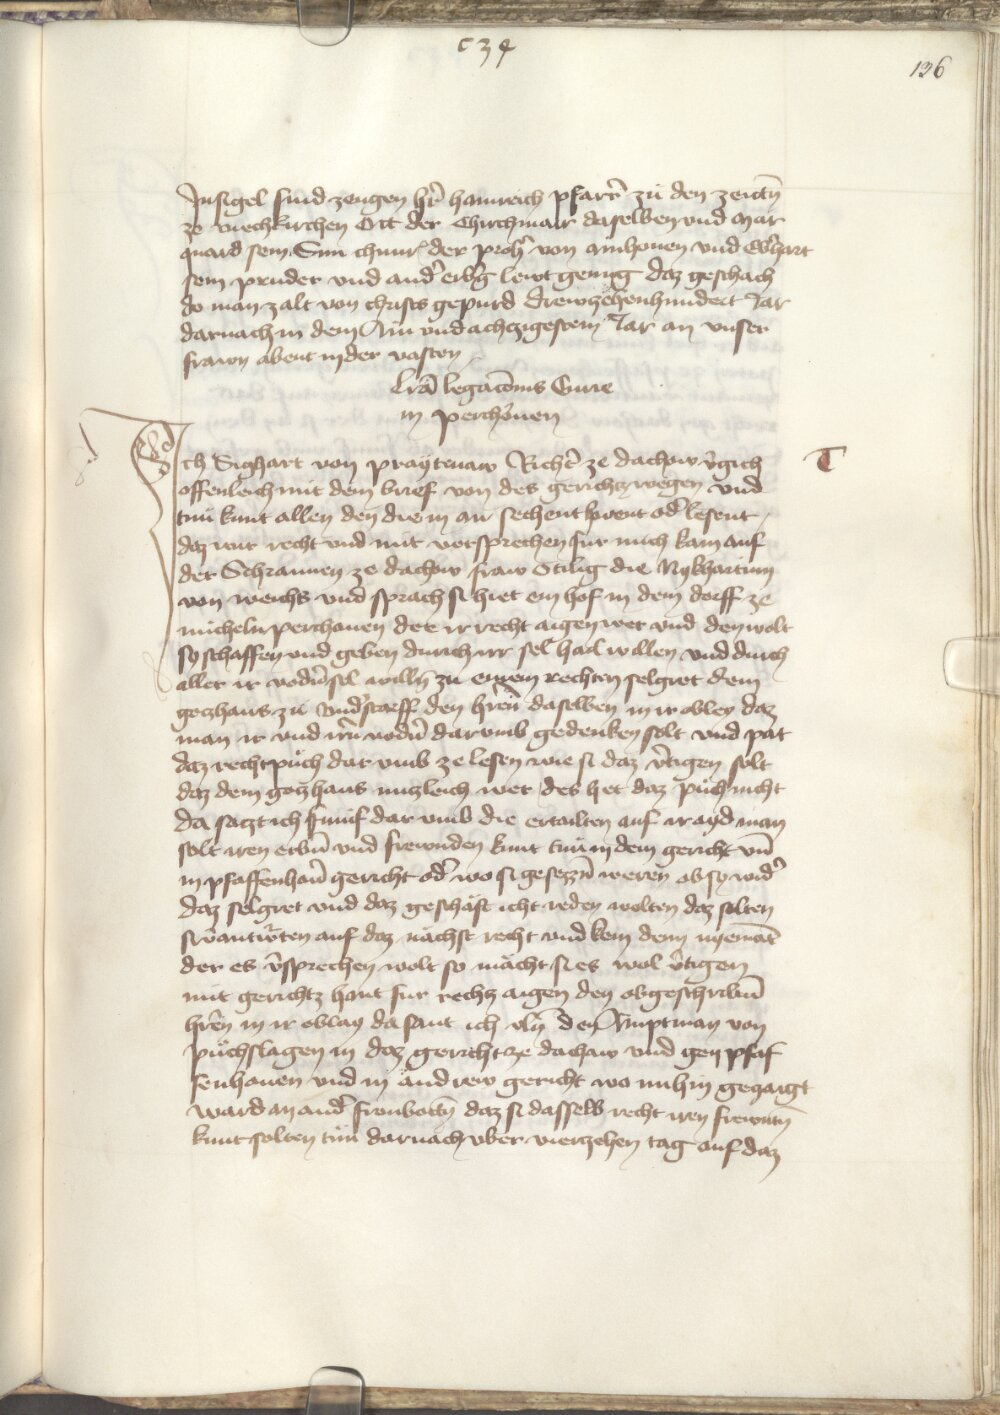 c34
136
Insigel sind zeugen hr̄ hainreich pfarr̄ zu den zeittn̄
ze viechkirchen Ott der Chirchmair daselben und Mar
quard sein Sun der von amhouen und Eb̄hart
sein pruder und and̄ erb̄g lewt genug daz geschach
do man zalt von christs gepurd drewzehenhundert Jar
darnach in dem Ain und achczigestem Jar an vnser
frawn abent in der vasten
Lrā legacōnis Curie
in perchouen
Ich Sighart von praytenaw Richt̄ ze dachow v̄gich
offenleich mit dem brief von des gerichcz wegen und
tuͤn kunt allen den die in an sechent horent od̄ lesent
daz mir recht und mit vorsprechen fur mich kam auf
der Schrannen ze dachow fraw Otilig die Nykhartinn
von weichs und sprach si hiet ein hof in dem dorff ze
nucheln perchouen der ir recht aigen wer und den wolt
sy schaffen und geben durch irr sel hail willen und durch
aller ir vodn̄ sel willn̄ zu einem rechten selgret dem
goczhaus zu vnd̄storff den hr̄en daselben in ir obley daz
man ir und irn̄ vodn̄ darumb gedenken solt und pat
daz rechtpuͤch dar umb ze lesen wie si daz v̄tigen solt
daz dem goczhaus nuczleich wer des het daz puͤch nicht
da saczt ich funif dar umb die ertailten auf ir ayd man
solt iren erbn̄ und frewnden kunt tuͤn in dem gericht vn̄
in pfaffenhoūn gericht od̄ wo si gesezzn̄ weren ob sy wid̄
daz selgret und daz geschaͤft icht reden wolten daz solten
si v̄antwr̄ten auf daz naͤchst recht und kem denn niemāt
der es v̄sprechen wolt so maͤcht si es wol v̄tigen
mit gerichtz hant fur rechcz aigen den obgeschribn̄
hr̄en in ir oblay da sant ich vlr̄ den Amptman von
puͤchslagen in daz gericht ze dachaw und gen pfaf
fenhouen und in andrew gericht wo im hin gezaigt
ward an and̄ fronbottn̄ daz si dasselb recht iren frewntn̄
kunt solten tuͤn darnach vber vierzehen tag auf daz